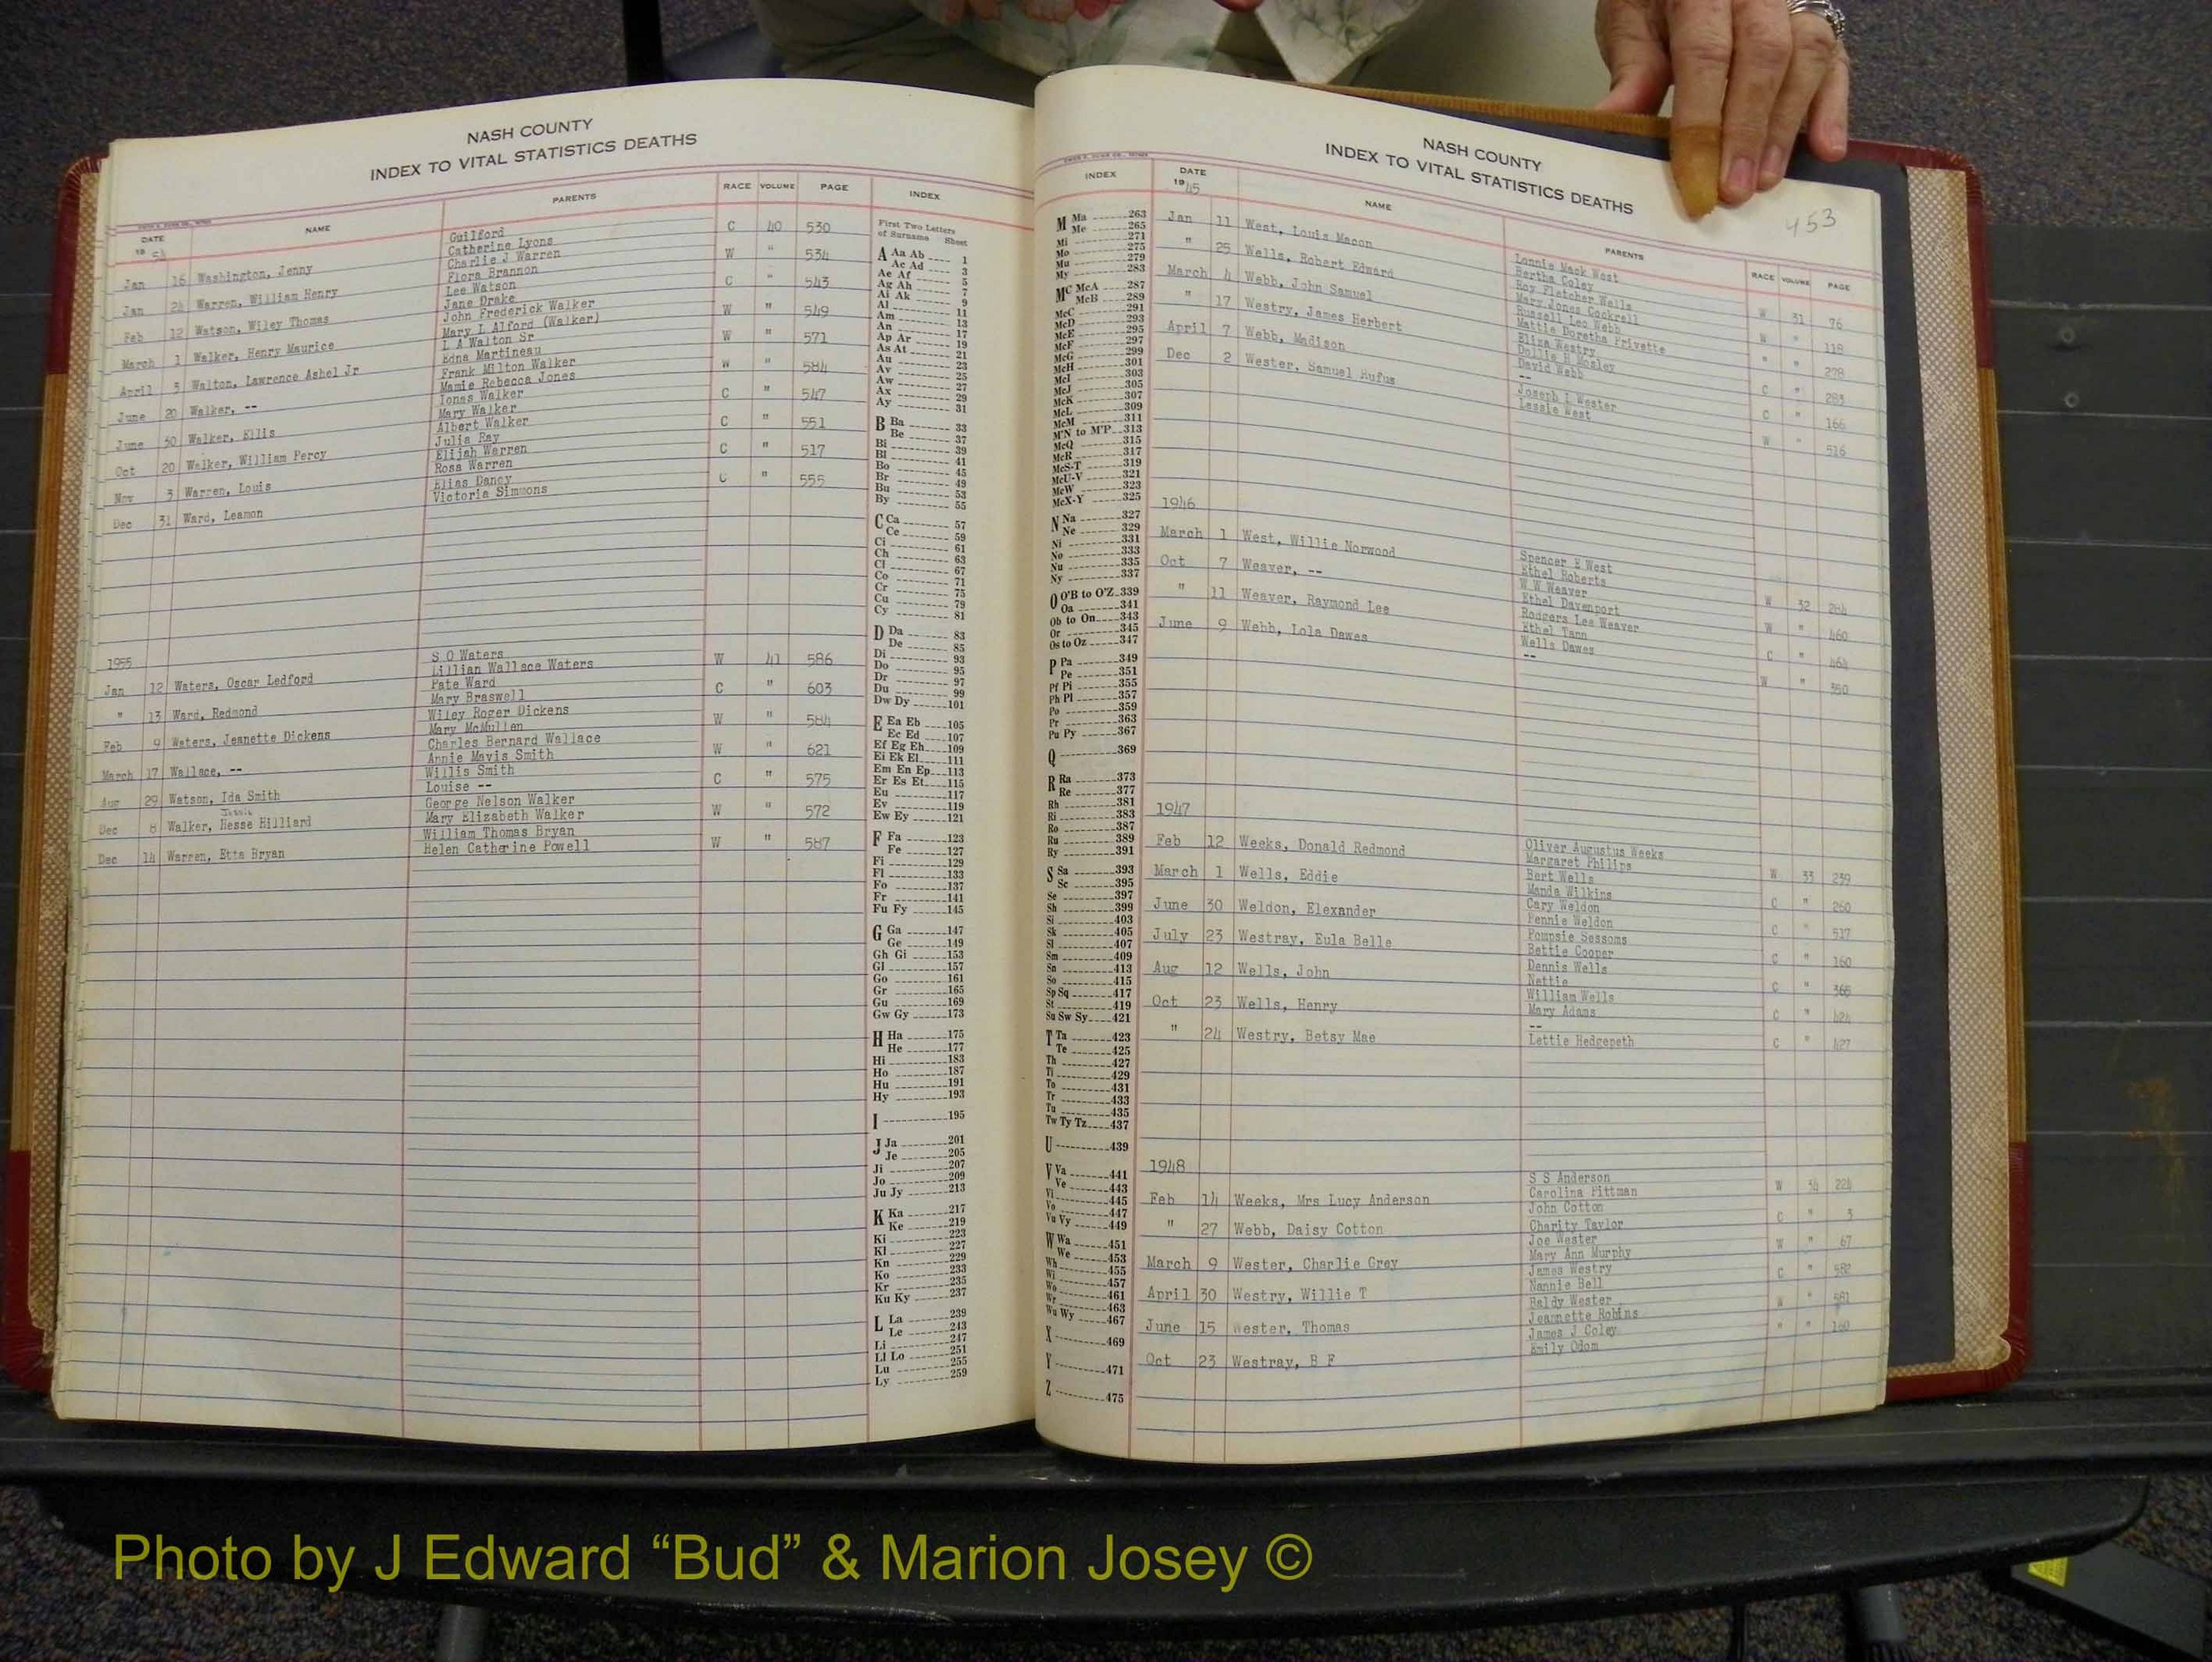 NASH COUNTY
INDEX TO VITAL STATISTICS DEATHS
DATE NAME PARENTS RACE VOLUME PAGE
19 54
Guilford
Jan 16 Washington, Jenny Catherine Lyons C 40 530
Charlie J Warren
Jan 24 Warren, William Henry Flora Brannon W " 534
Lee Watson
Feb 12 Watson, Wiley Thomas Jane Drake C " 543
John Frederick Walker
March 1 Walker, Henry Maurice Mary L Alford (Walker) W " 549
L A Walton Sr
April 3 Walton, Lawrence Ashel Jr Edna Martineau W " 571
Frank Milton Walker
June 20 Walker, -- Mamie Rebecca Jones W " 584
Jonas Walker
June 30 Walker, Ellis Mary Walker C " 547
Albert Walker
Oct 20 Walker, William Percy Julia Ray C " 551
Elijah Warren
Nov 3 Warren, Louis Rosa Warren C " 517
Elias Dancy
Dec 31 Ward, Leamon Victoria Simmons C " 555
1955
S O Waters
Jan 12 Waters, Oscar Ledford Lillian Wallace Waters W 41 586
Pate Ward
" 13 Ward, Redmond Mary Braswell C " 603
Wiley Roger Dickens
Feb 9 Waters, Jeanette Dickens Mary McMullen W " 584
Charles Bernard Wallace
March 17 Wallace, -- Annie Mavis Smith W " 621
Willis Smith
Aug 29 Watson, Ida Smith Louise -- C " 575
George Nelson Walker
Jessie
Dec 8 Walker, Hesse Hilliard Mary Elizabeth Walker W " 572
William Thomas Bryan
Dec 14 Warren, Etta Bryan Helen Catherine Powell W " 587
INDEX
First Two Letters
of Surname Sheet
A Aa Ab 1
Ac Ad 3
Ae Af 5
Ag Ah 7
Ai Ak 9
Al 11
Am 13
An 17
Ap Ar 19
As At 21
Au 23
Av 25
Aw 27
Ax 29
Ay 31
B Ba 33
Be 37
Bi 39
Bl 41
Bo 45
Br 49
Bu 53
By 55
C Ca 57
Ce 59
Ci 61
Ch 63
Cl 67
Co 71
Cr 75
Cu 79
Cy 81
D Da 83
De 85
Di 93
Do 95
Dr 97
Du 99
Dw Dy 101
E Ea Eb 105
Ec Ed 107
Ef Eg Eh 109
Ei Ek El 111
Em En Ep 113
Er Es Et 115
Eu 117
Ev 119
Ew Ey 121
F Fa 123
Fe 127
Fi 129
Fl 133
Fo 137
Fr 141
Fu Fy 145
G Ga 147
Ge 149
Gh Gi 153
Gl 157
Go 161
Gr 165
Gu 169
Gw Gy 173
H Ha 175
He 177
Hi 183
Ho 187
Hu 191
Hy 193
I 195
J Ja 201
Je 205
Ji 207
Jo 209
Ju Jy 213
K Ka 217
Ke 219
Ki 223
Kl 227
Kn 229
Ko 233
Kr 235
Ku Ky 237
L La 239
Le 243
Li 247
Ll Lo 251
Lu 255
Ly 259
INDEX
M Ma 263
Me 265
Mi 271
Mo 275
Mu 279
My 283
Mc McA 287
McB 289
McC 291
McD 293
McE 295
McF 297
McG 299
McH 301
McI 303
McJ 305
McK 307
McL 309
McM 311
M'N to M'P 313
McQ 315
McR 317
McS-T 319
McU-V 321
McW 323
McX-Y 325
N Na 327
Ne 329
Ni 331
No 333
Nu 335
Ny 337
O O'B to O'Z 339
Oa 341
Ob to On 343
Or 345
Os to Oz 347
P Pa 349
Pe 351
Pf Pi 355
Ph Pl 357
Po 359
Pr 363
Pu Py 367
Q 369
R Ra 373
Re 377
Rh 381
Ri 383
Ro 387
Ru 389
Ry 391
S Sa 393
Sc 395
Se 397
Sh 399
Si 403
Sk 405
Sl 407
Sm 409
Sn 413
So 415
Sp Sq 417
St 419
Su Sw Sy 421
T Ta 423
Te 425
Th 427
Ti 429
To 431
Tr 433
Tu 435
Tw Ty Tz 437
U 439
V Va 441
Ve 443
Vi 445
Vo 447
Vu Vy 449
W Wa 451
We 453
Wh 455
Wi 457
Wo 461
Wr 463
Wu Wy 467
X 469
Y 471
Z 475
NASH COUNTY
INDEX TO VITAL STATISTICS DEATHS
453
DATE NAME PARENTS RACE VOLUME PAGE
1945
Lonnie Mack West
Jan 11 West, Louis Macon Bertha Coley W 31 76
Roy Fletcher Wells
" 25 Wells, Robert Edward Mary Jones Cockrell W " 118
Russell Leo Webb
March 4 Webb, John Samuel Mattie Doretha Privette " " 278
Eliza Westry
" 17 Westry, James Herbert Dollie H Mosley C " 283
David Webb
April 7 Webb, Madison -- C " 166
Joseph I Wester
Dec 2 Wester, Samuel Rufus Lessie West W " 516
1946
Spencer E West
March 1 West, Willie Norwood Ethel Roberts W 32 284
W W Weaver
Oct 7 Weaver, -- Ethel Davenport W " 460
Rodgers Lee Weaver
" 11 Weaver, Raymond Lee Ethel Tann C " 464
Wells Dawes
June 9 Webb, Lola Dawes -- W " 350
1947
Oliver Augustus Weeks
Feb 12 Weeks, Donald Redmond Margaret Philips W 33 239
Bert Wells
March 1 Wells, Eddie Manda Wilkins C " 260
Cary Weldon
June 30 Weldon, Elexander Pennie Weldon C " 517
Pompsie Sessoms
July 23 Westray, Eula Belle Bettie Cooper C " 160
Dennis Wells
Aug 12 Wells, John Nettie C " 365
William Wells
Oct 23 Wells, Henry Mary Adams C " 424
--
" 24 Westry, Betsy Mae Lettie Hedgepeth C " 427
1948
S S Anderson
Feb 14 Weeks, Mrs Lucy Anderson Carolina Pittman W 34 224
John Cotton
" 27 Webb, Daisy Cotton Charity Taylor C " 3
Joe Wester
March 9 Wester, Charlie Grey Mary Ann Murphy W " 67
James Westry
April 30 Westry, Willie T Nannie Bell C " 582
Baldy Wester
June 15 Wester, Thomas Jeannette Robins W " 581
James J Coley
Oct 23 Westray, B F Emily Odom " " 160
Photo by J Edward “Bud” & Marion Josey ©